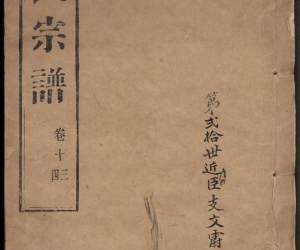 第弍拾世近臣支文
宗譜
卷十三四